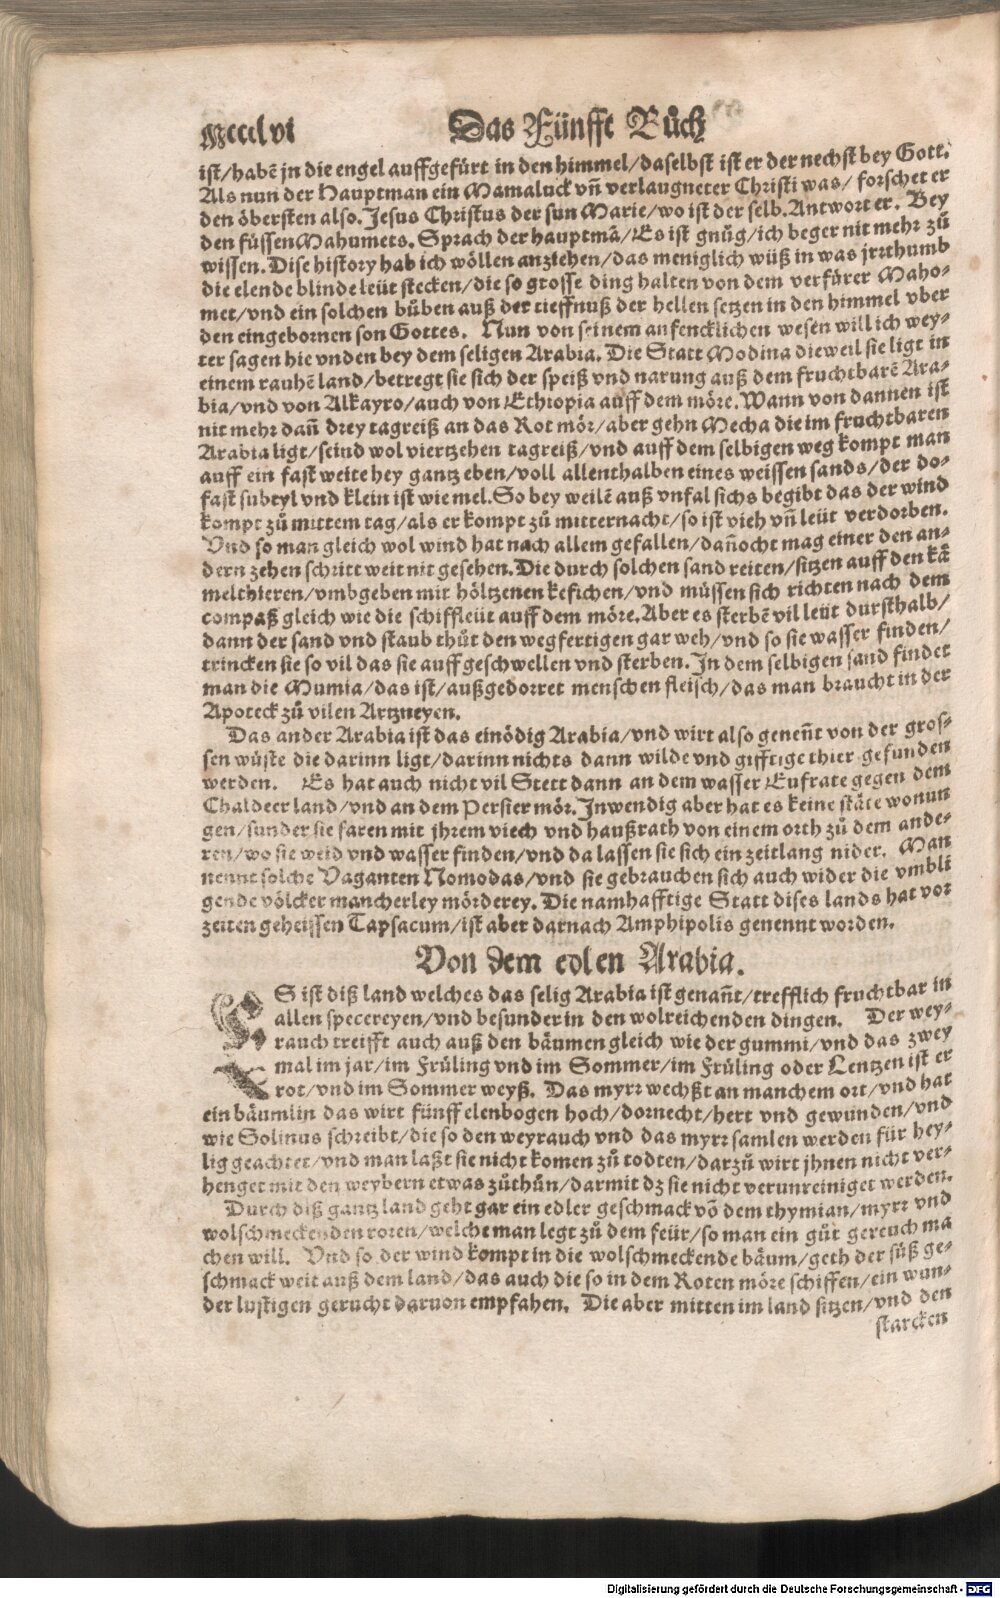 Mccclvi Das Fünfft Bůch
ist/habẽ jn die engel auffgefürt in den himmel/daselbst ist er der nechst bey Gott.
Als nun der Hauptman ein Mamaluck vñ verlaugneter Christi was/ forschet er
den öbersten also. Jesus Christus der sun Marie/wo ist der selb. Antwort er. Bey
den füssen Mahumets. Sprach der hauptmã/Es ist gnůg/ich beger nit mehr zů
wissen. Dise history hab ich wöllen anziehen/das meniglich wüß in was jrrthumb
die elende blinde leüt stecken/die so grosse ding halten von dem verfürer Maho-
met/vnd ein solchen bůben auß der tieffnuß der hellen setzen in den himmel vber
den eingebornen son Gottes. Nun von seinem anfencklichen wesen will ich wey-
ter sagen hie vnden bey dem seligen Arabia. Die Statt Modina dieweil sie ligt in
einem rauhẽ land/betregt sie sich der speiß vnd narung auß dem fruchtbarẽ Ara-
bia/vnd von Alkayro/auch von Ethiopia auff dem möre. Wann von dannen ist
nit mehr dañ drey tagreiß an das Rot mör/aber gehn Mecha die im fruchtbaren
Arabia ligt/seind wol viertzehen tagreiß/vnd auff dem selbigen weg kompt man
auff ein fast weite hey gantz eben/voll allenthalben eines weissen sands/der do-
fast subtyl vnd klein ist wie mel. So bey weilẽ auß vnfal sichs begibt das der wind
kompt zů mittem tag/als er kompt zů mitternacht/so ist vieh vñ leüt verdorben.
Vnd so man gleich wol wind hat nach allem gefallen/dañocht mag einer den an-
dern zehen schritt weit nit gesehen. Die durch solchen sand reiten/sitzen auff den kã
melthieren/vmbgeben mit höltzenen kefichen/vnd müssen sich richten nach dem
compaß gleich wie die schiffleüt auff dem möre. Aber es sterbẽ vil leüt dursthalb/
dann der sand vnd staub thůt den wegfertigen gar weh/vnd so sie wasser finden/
trincken sie so vil das sie auffgeschwellen vnd sterben. In dem selbigen sand findet
man die Mumia/das ist/außgedorret menschen fleisch/das man braucht in der
Apoteck zů vilen Artzneyen.
Das ander Arabia ist das einödig Arabia/vnd wirt also geneñt von der gros-
sen wüste die darinn ligt/darinn nichts dann wilde vnd gifftige thier gefunden
werden. Es hat auch nicht vil Stett dann an dem wasser Eufrate gegen dem
Chaldeer land/vnd an dem Persier mör. Inwendig aber hat es keine stäte wonun
gen/sunder sie faren mit jhrem viech vnd haußrath von einem orth zů dem ande-
ren/wo sie weid vnd wasser finden/vnd da lassen sie sich ein zeitlang nider. Man
nennt solche Vaganten Nomodas/vnd sie gebrauchen sich auch wider die vmbli
gende völcker mancherley mörderey. Die namhafftige Statt dises lands hat vor
zeiten geheissen Tapsacum/ist aber darnach Amphipolis genennt worden.
Von dem edlen Arabia.
ES ist diß land welches das selig Arabia ist genañt/trefflich fruchtbar in
allen specereyen/vnd besunder in den wolreichenden dingen. Der wey-
rauch treifft auch auß den bäumen gleich wie der gummi/vnd das zwey
mal im jar/im Früling vnd im Sommer/im Früling oder Lentzen ist er
rot/vnd im Sommer weyß. Das myrr wechßt an manchem ort/vnd hat
ein bäumlin das wirt fünff elenbogen hoch/dornecht/hert vnd gewunden/vnd
wie Solinus schreibt/die so den weyrauch vnd das myrr samlen werden für hey-
lig geachtet/vnd man laßt sie nicht komen zů todten/darzů wirt jhnen nicht ver-
henget mit den weybern etwas zůthůn/darmit dz sie nicht verunreiniget werden.
Durch diß gantz land geht gar ein edler geschmack võ dem thymian/myrr vnd
wolschmeckenden roren/welche man legt zů dem feür/so man ein gůt gereuch ma
chen will. Vnd so der wind kompt in die wolschmeckende bäum/geth der süß ge-
schmack weit auß dem land/das auch die so in dem Roten möre schiffen/ein wun-
der lustigen gerucht daruon empfahen. Die aber mitten im land sitzen/vnd den
starcken
Digitalisierung gefördert durch die Deutsche Forschungsgemeinschaft - DFG